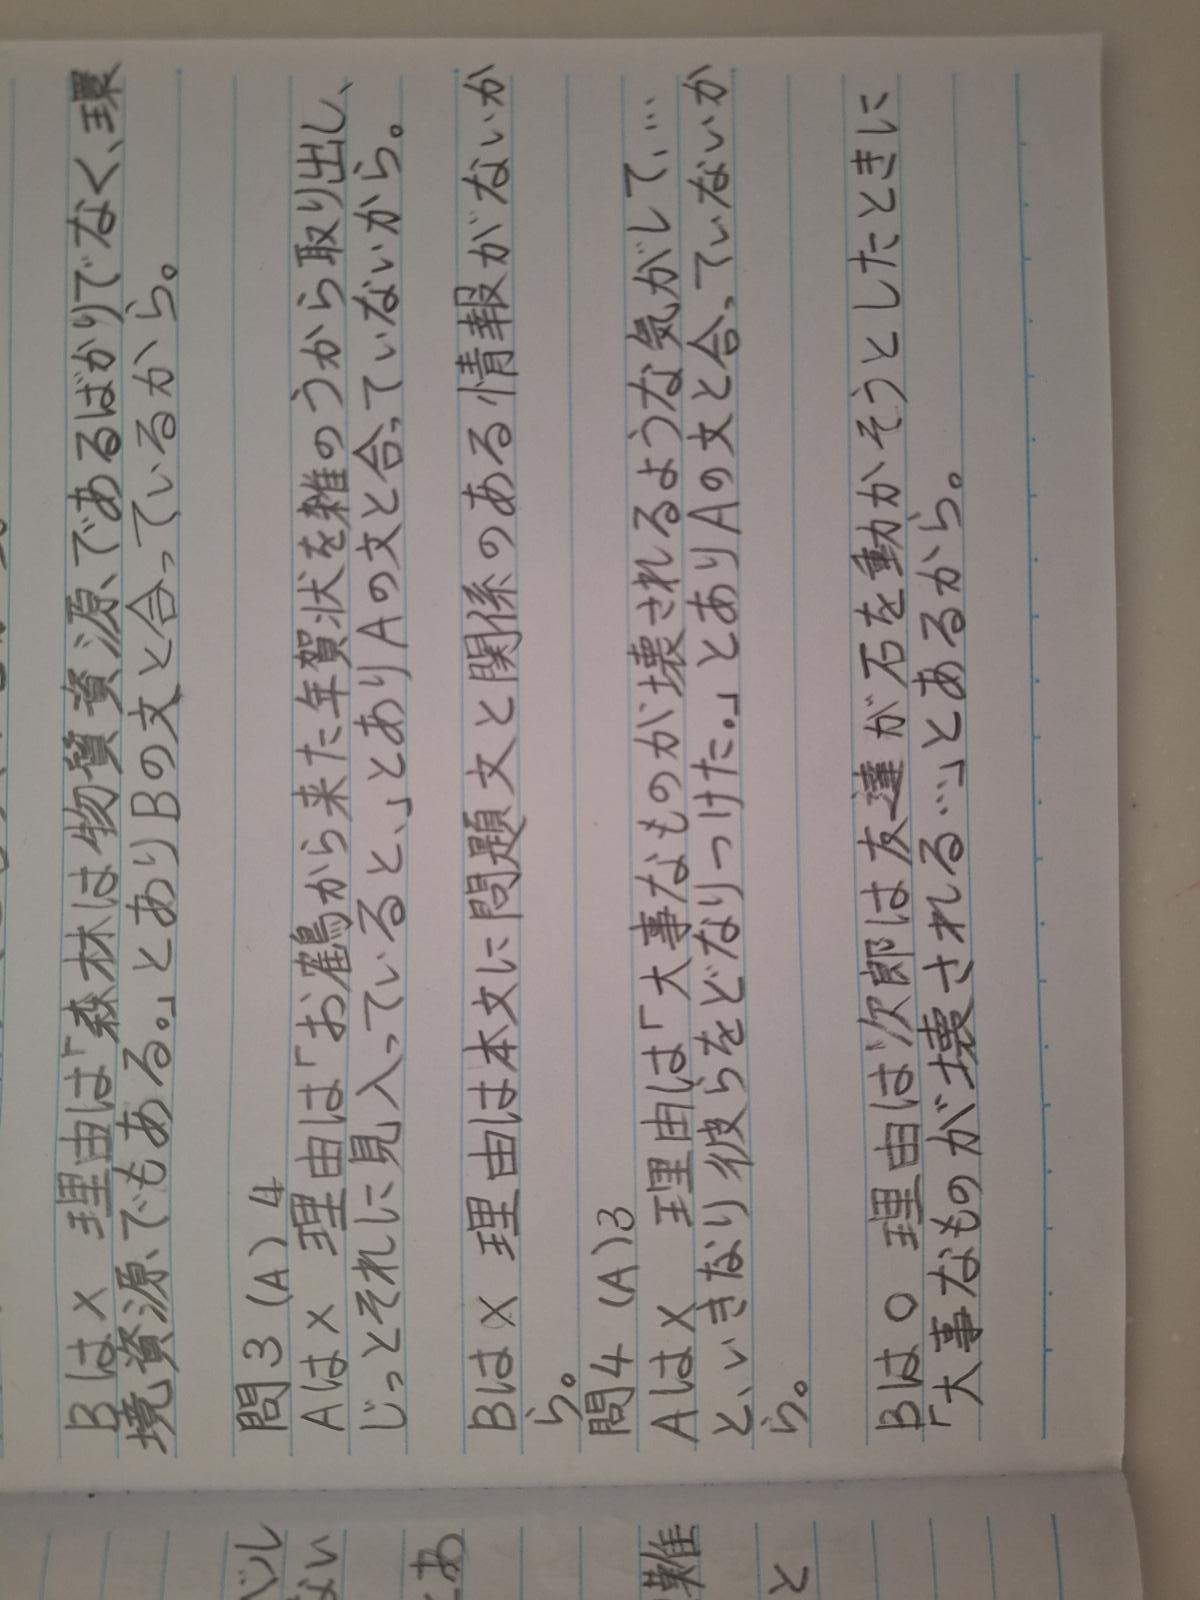 Bは×　理由は「森林は物質資源であるばかりでなく、環
境資源でもある。」とありBの文と合っているから。
問3 (A) 4
Aは×　理由は「お鶴から来た年賀状を雑のうから取り出し、
じっとそれに見入っていると、」とありAの文と合っていないから。
Bは×　理由は本文に問題文と関係のある情報がないか
ら。
問4 (A) 3
Aは×　理由は「大事なものが壊されるような気がして、…
と、いきなり彼らをどなりつけた。」とありAの文と合っていないか
ら。
Bは○　理由は次郎は友達が石を動かそうとしたときに
「大事なものが壊される…」とあるから。
ない
難
と